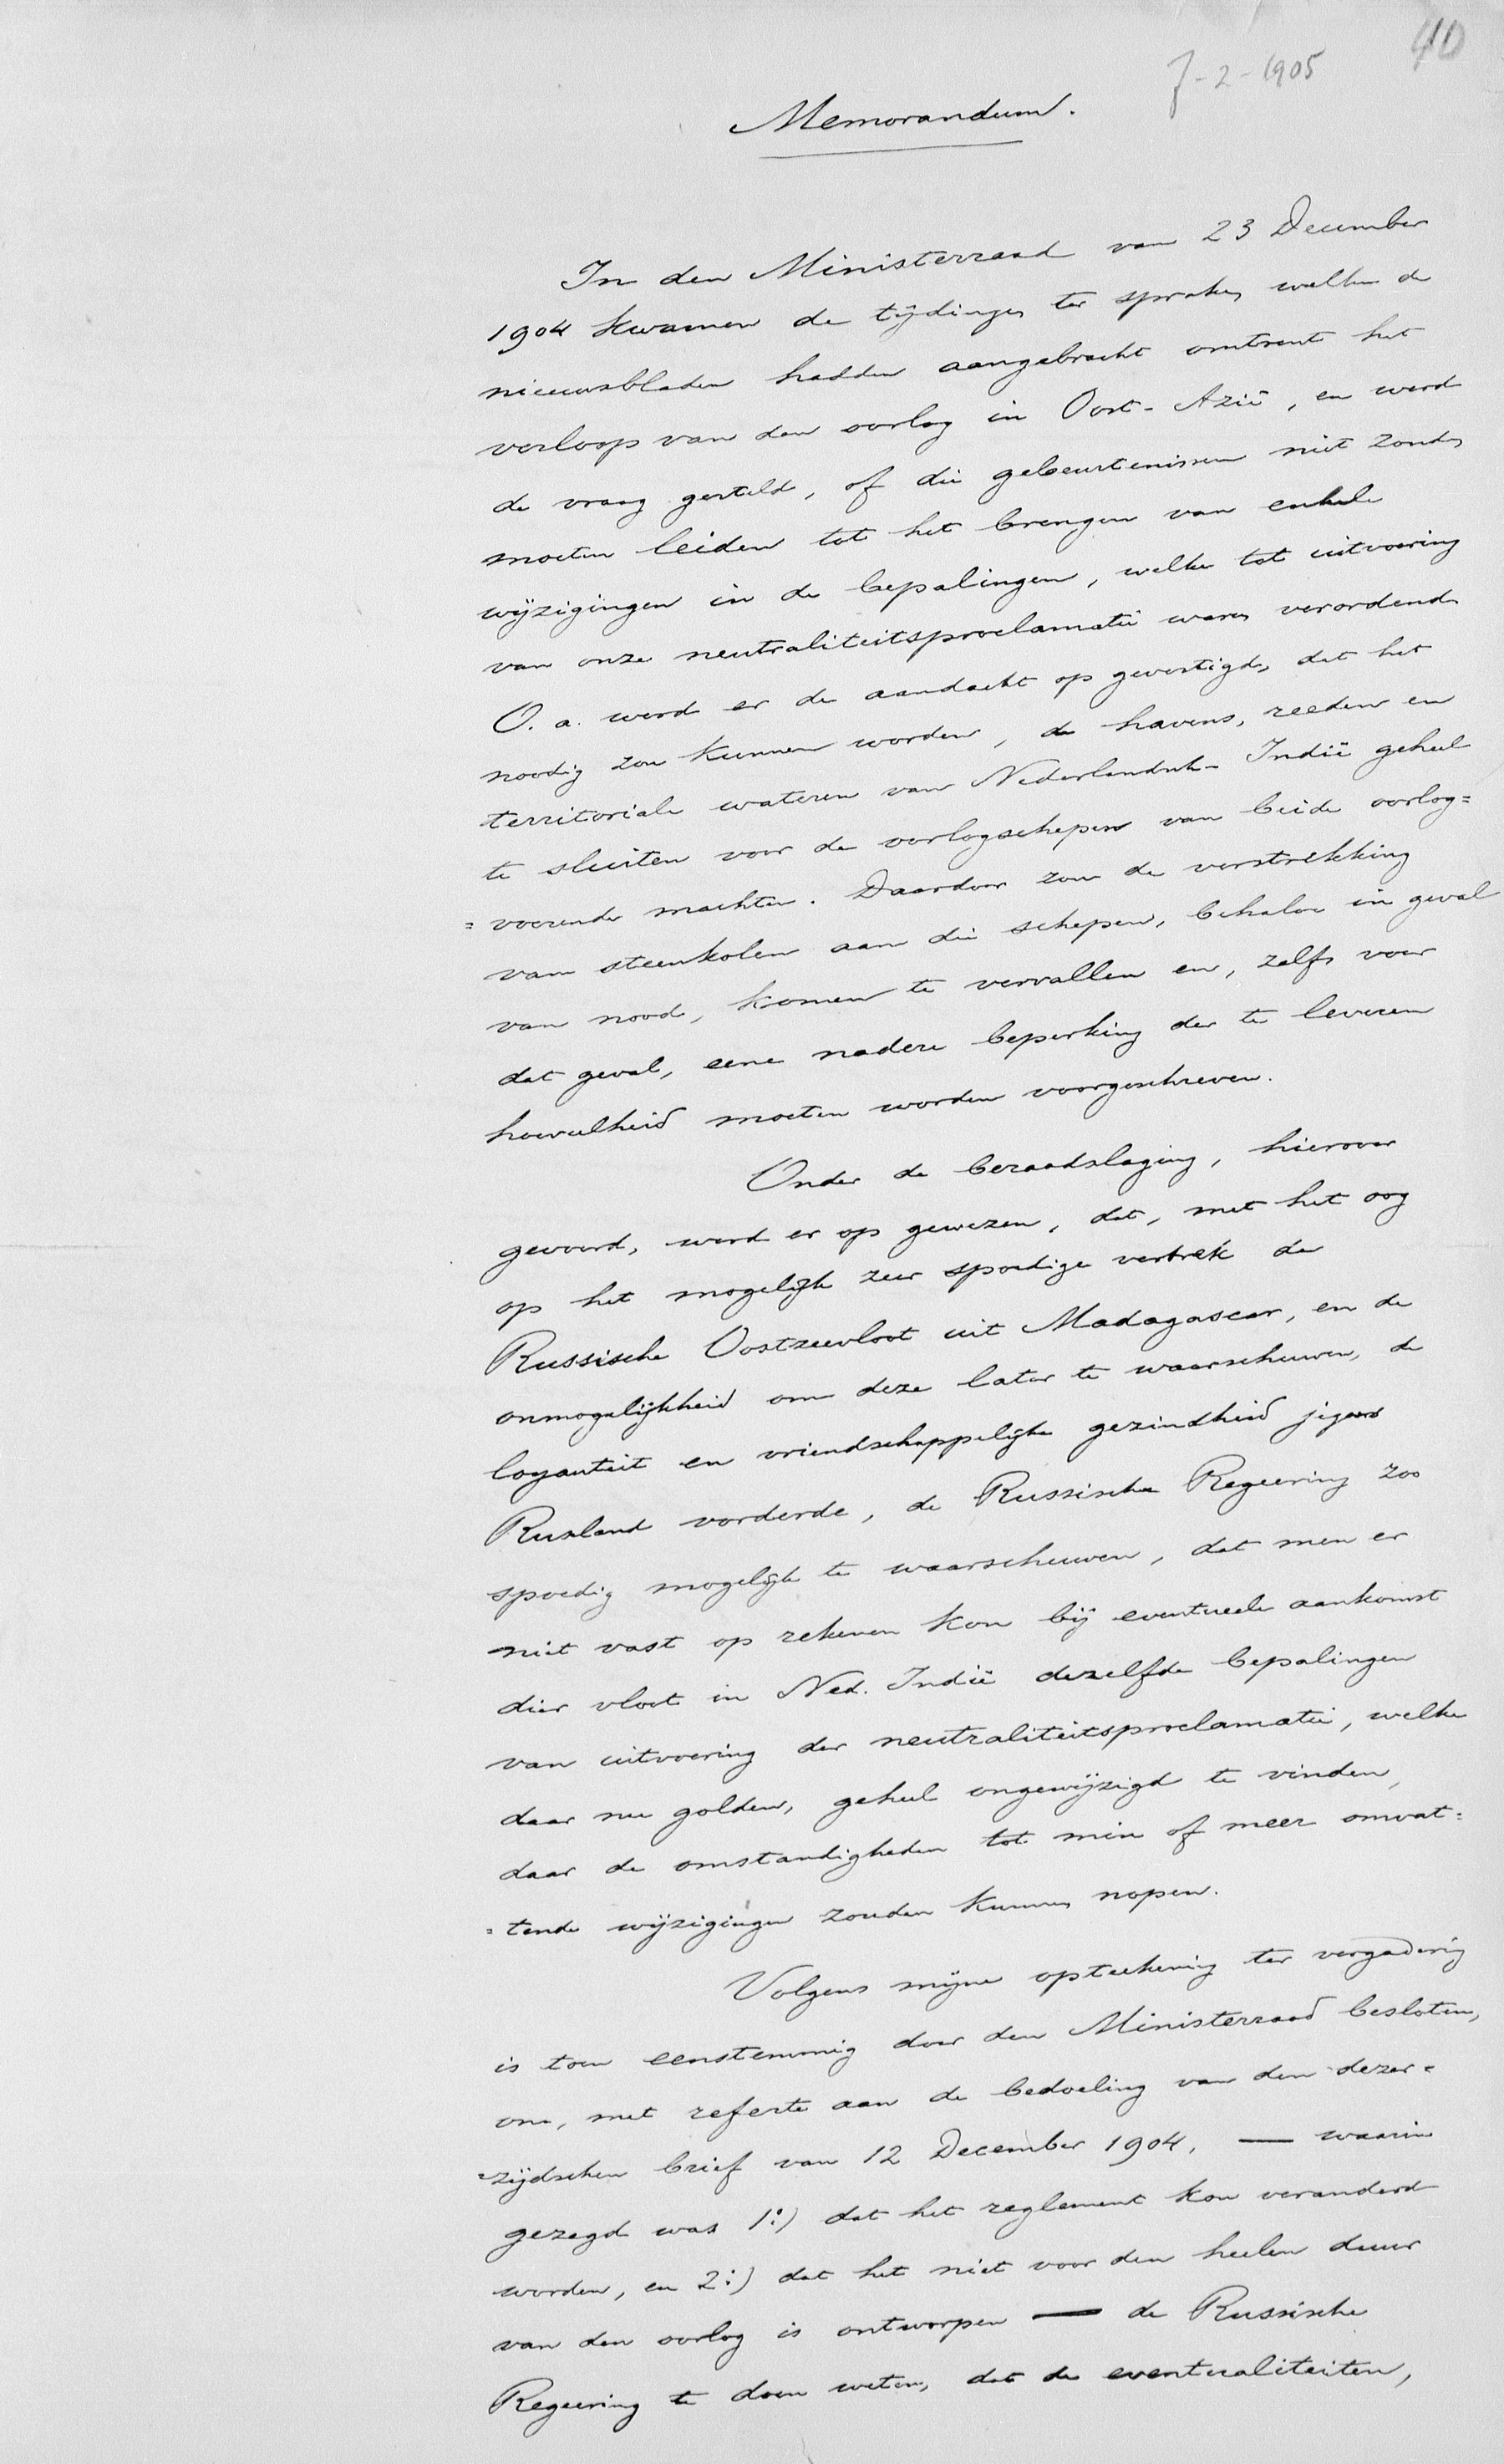 40
7-2-1905
Memorandum.
In den Ministerraad van 23 December
1904 kwamen de tijdingen ter sprake, welke de
nieuwsbladen hadden aangebracht omtrent het
verloop van den oorlog in Oost-Azië, en werd
de vraag gesteld, of die gebeurtenissen niet zouden
moeten leiden tot het brengen van enkele
wijzigingen in de bepalingen, welke tot uitvoering
van onze neutraliteitsproclamatie waren verordend.
O. a. werd er de aandacht op gevestigd, dat het
noodig zou kunnen worden, de havens, reeden en
territoriale wateren van Nederlandsch-Indië geheel
te sluiten voor de oorlogschepen van beide oorlog=
=voerende machten. Daardoor zou de verstrekking
van steenkolen aan die schepen, behalve in geval
van nood, komen te vervallen en, zelfs voor
dat geval, eene nadere beperking der te leveren
hoeveelheid moeten worden voorgeschreven.
Onder de beraadslaging, hierover
gevoerd, werd er op gewezen, dat, met het oog
op het mogelijk zeer spoedige vertrek der
Russische Oostzeevloot uit Madagascar, en de
onmogelijkheid om deze later te waarschuwen, de
loyauteit en vriendschappelijke gezindheid jegens
Rusland vorderde, de Russische Regeering zoo
spoedig mogelijk te waarschuwen, dat men er
niet vast op rekenen kon bij eventueele aankomst
dier vloot in Ned. Indië dezelfde bepalingen
van uitvoering der neutraliteitsproclamatie, welke
daar nu golden, geheel ongewijzigd te vinden,
daar de omstandigheden tot min of meer omvat=
=tende wijzigingen zouden kunnen nopen.
Volgens mijne opteekening ter vergadering
is toen eenstemmig door den Ministerraad besloten,
om, met referte aan de bedoeling van den dezer=
=zijdschen brief van 12 December 1904, — waarin
gezegd was 1:) dat het reglement kon veranderd
worden, en 2:) dat het niet voor den heelen duur
van den oorlog is ontworpen — de Russische
Regeering te doen weten, dat de eventualiteiten,